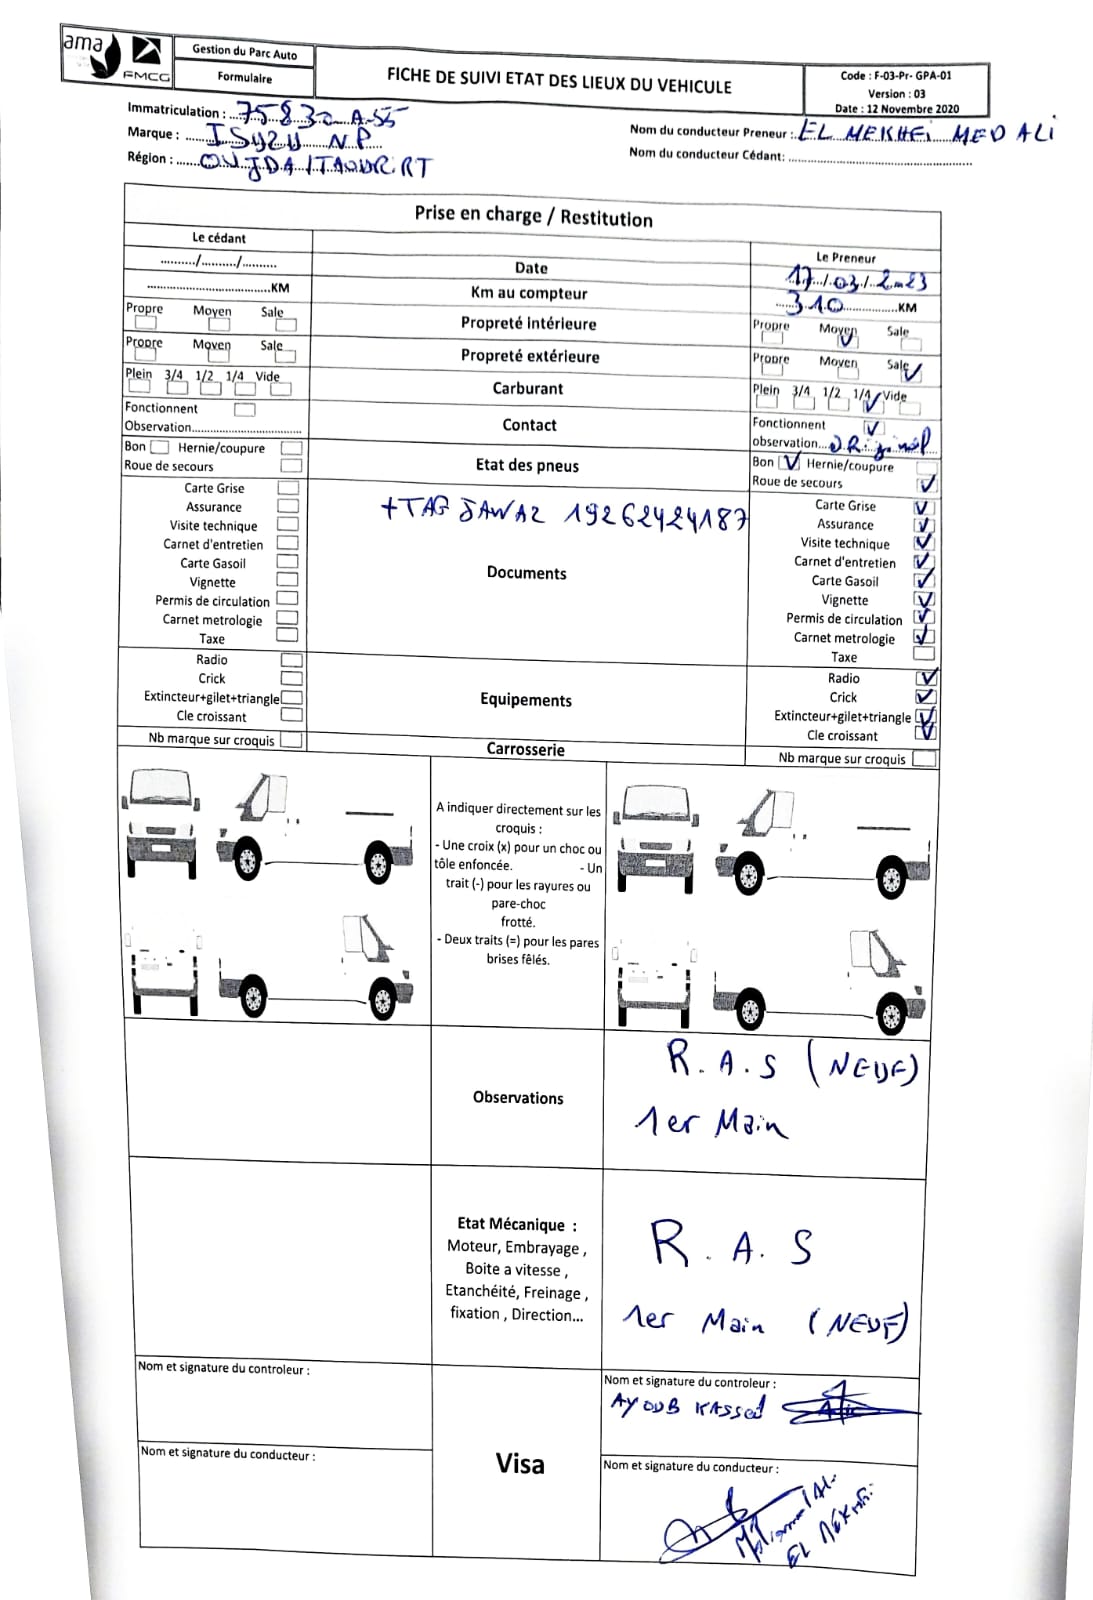 ama
FMCG
Gestion du Parc Auto
Formulaire
FICHE DE SUIVI ETAT DES LIEUX DU VEHICULE
Code : F-03-Pr- GPA-01
Version : 03
Date : 12 Novembre 2020
Immatriculation : 75832 A-55
Marque : ISUZU NP
Région : OUJDA/TAOURIRT
Nom du conducteur Preneur : EL MEKHEI MED ALI
Nom du conducteur Cédant:
Prise en charge / Restitution
Le cédant
Le Preneur
........../........./.......... Date 17/03/2023
KM Km au compteur 310 KM
Propre Moyen Sale Propreté intérieure Propre Moyen Sale
Propre Moyen Sale Propreté extérieure Propre Moyen Sale
Plein 3/4 1/2 1/4 Vide Carburant Plein 3/4 1/2 1/4 Vide
Fonctionnent Contact Fonctionnent
Observation observation... ORiginal
Bon Hernie/coupure Etat des pneus Bon Hernie/coupure
Roue de secours Roue de secours
+TAG JAWAZ 19262424187
Documents
Carte Grise Carte Grise
Assurance Assurance
Visite technique Visite technique
Carnet d'entretien Carnet d'entretien
Carte Gasoil Carte Gasoil
Vignette Vignette
Permis de circulation Permis de circulation
Carnet metrologie Carnet metrologie
Taxe Taxe
Equipements
Radio Radio
Crick Crick
Extincteur+gilet+triangle Extincteur+gilet+triangle
Cle croissant Cle croissant
Nb marque sur croquis Carrosserie Nb marque sur croquis
A indiquer directement sur les
croquis :
- Une croix (x) pour un choc ou
tôle enfoncée. - Un
trait (-) pour les rayures ou
pare-choc
frotté.
- Deux traits (=) pour les pares
brises fêlés.
Observations
R.A.S (NEUF)
1er Main
Etat Mécanique :
Moteur, Embrayage ,
Boite a vitesse ,
Etanchéité, Freinage ,
fixation , Direction...
R.A.S
1er Main (NEUF)
Nom et signature du controleur :
Nom et signature du conducteur :
Visa
Nom et signature du controleur :
AYOUB KASSed
Nom et signature du conducteur :